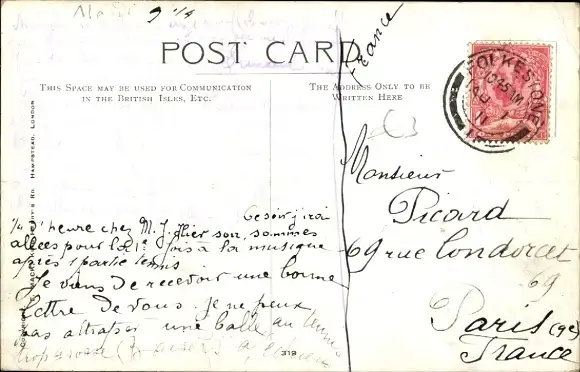 Mardi 9 1/4
POST CARD
France
THIS SPACE MAY BE USED FOR COMMUNICATION
IN THE BRITISH ISLES, ETC.
THE ADDRESS ONLY TO BE
WRITTEN HERE
FOLKESTONE
10 45 AM
AU
11
Monsieur
Picard
69 rue Condorcet
69
Paris (9e)
France
ce soir j'irai
1/4 d'heure chez M. J. Hier soir, sommes
allées pour la 1e fois à la musique
après 1 partie tennis
Je viens de recevoir une bonne
lettre de vous. Je ne peux
pas attraper une balle au tennis
trop grosse
319
HAMPSTEAD, LONDON